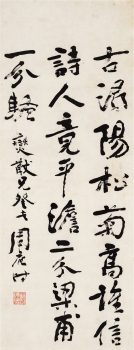 古潯陽松菊高誰信
詩人竟平澹二分梁甫
一分騷 燮猷兄 周